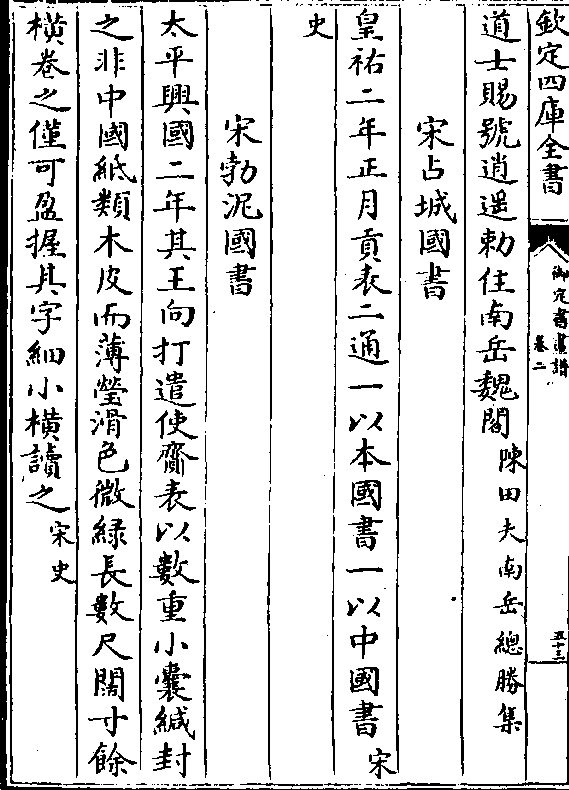 欽定四庫全書
御定書畫譜
卷二
五十三
道士賜號逍遥勅住南岳魏閣陳田夫南岳總勝集
宋占城國書
皇祐二年正月貢表二通一以本國書一以中國書宋
史
宋勃泥國書
太平興國二年其王向打遣使齎表以數重小囊緘封
之非中國紙類木皮而薄瑩滑色微緑長數尺闊寸餘
橫卷之僅可盈握其字細小橫讀之宋史